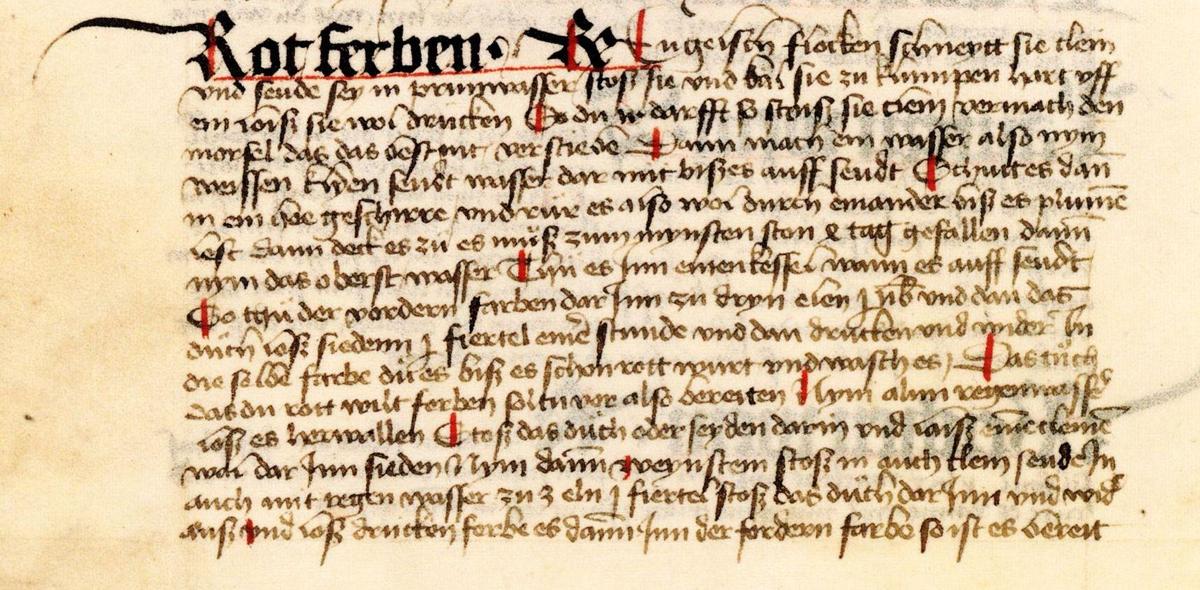 Rot ferben. Rx Engelsch flocken schneytt sie clein
vnd seude sey in prunwasser stosz sie vnd bal sie zu klumpen hart vff
ein losz sie wol drucken So du ir darfft so stosz sie clein vermach den
morsel das das best nit verstiebe Dann mach ein wasser also nym
weissen klyen seudt wasser dar mit bisz es auff seudt Schuttes dan
in ein geschirre vnd rür es also wol durch einander bisz es plumē
lest dann deck es zu es musz zum mynsten ston tag gefallen dann
nym das oberst wasser Thu es Inn einen kessel wann es auff seudt
So thu der vordern farben dar Inn zu dryn elen j lib vnd dan das
duch losz siedenn j fiertel einer stunde vnd dan drucken vnd wider In
die selbe farbe du es bisz es schon rott wurt vnd wasch es, Das tuch
das du rott wilt ferben soltu vor also bereiten Nym alun regenwasser
losz es herwallen Stosz das duch oder seyden darin vnd losz
wol dar Inn sieden Nym dann weynstein stosz in auch klein seude In
auch mit regen wasser zu 3 eln j fiertel stosz das duch dar Inn vnd wider
ausz vnd losz drucken ferbe es dann Inn der fordern farbe so ist es bereit